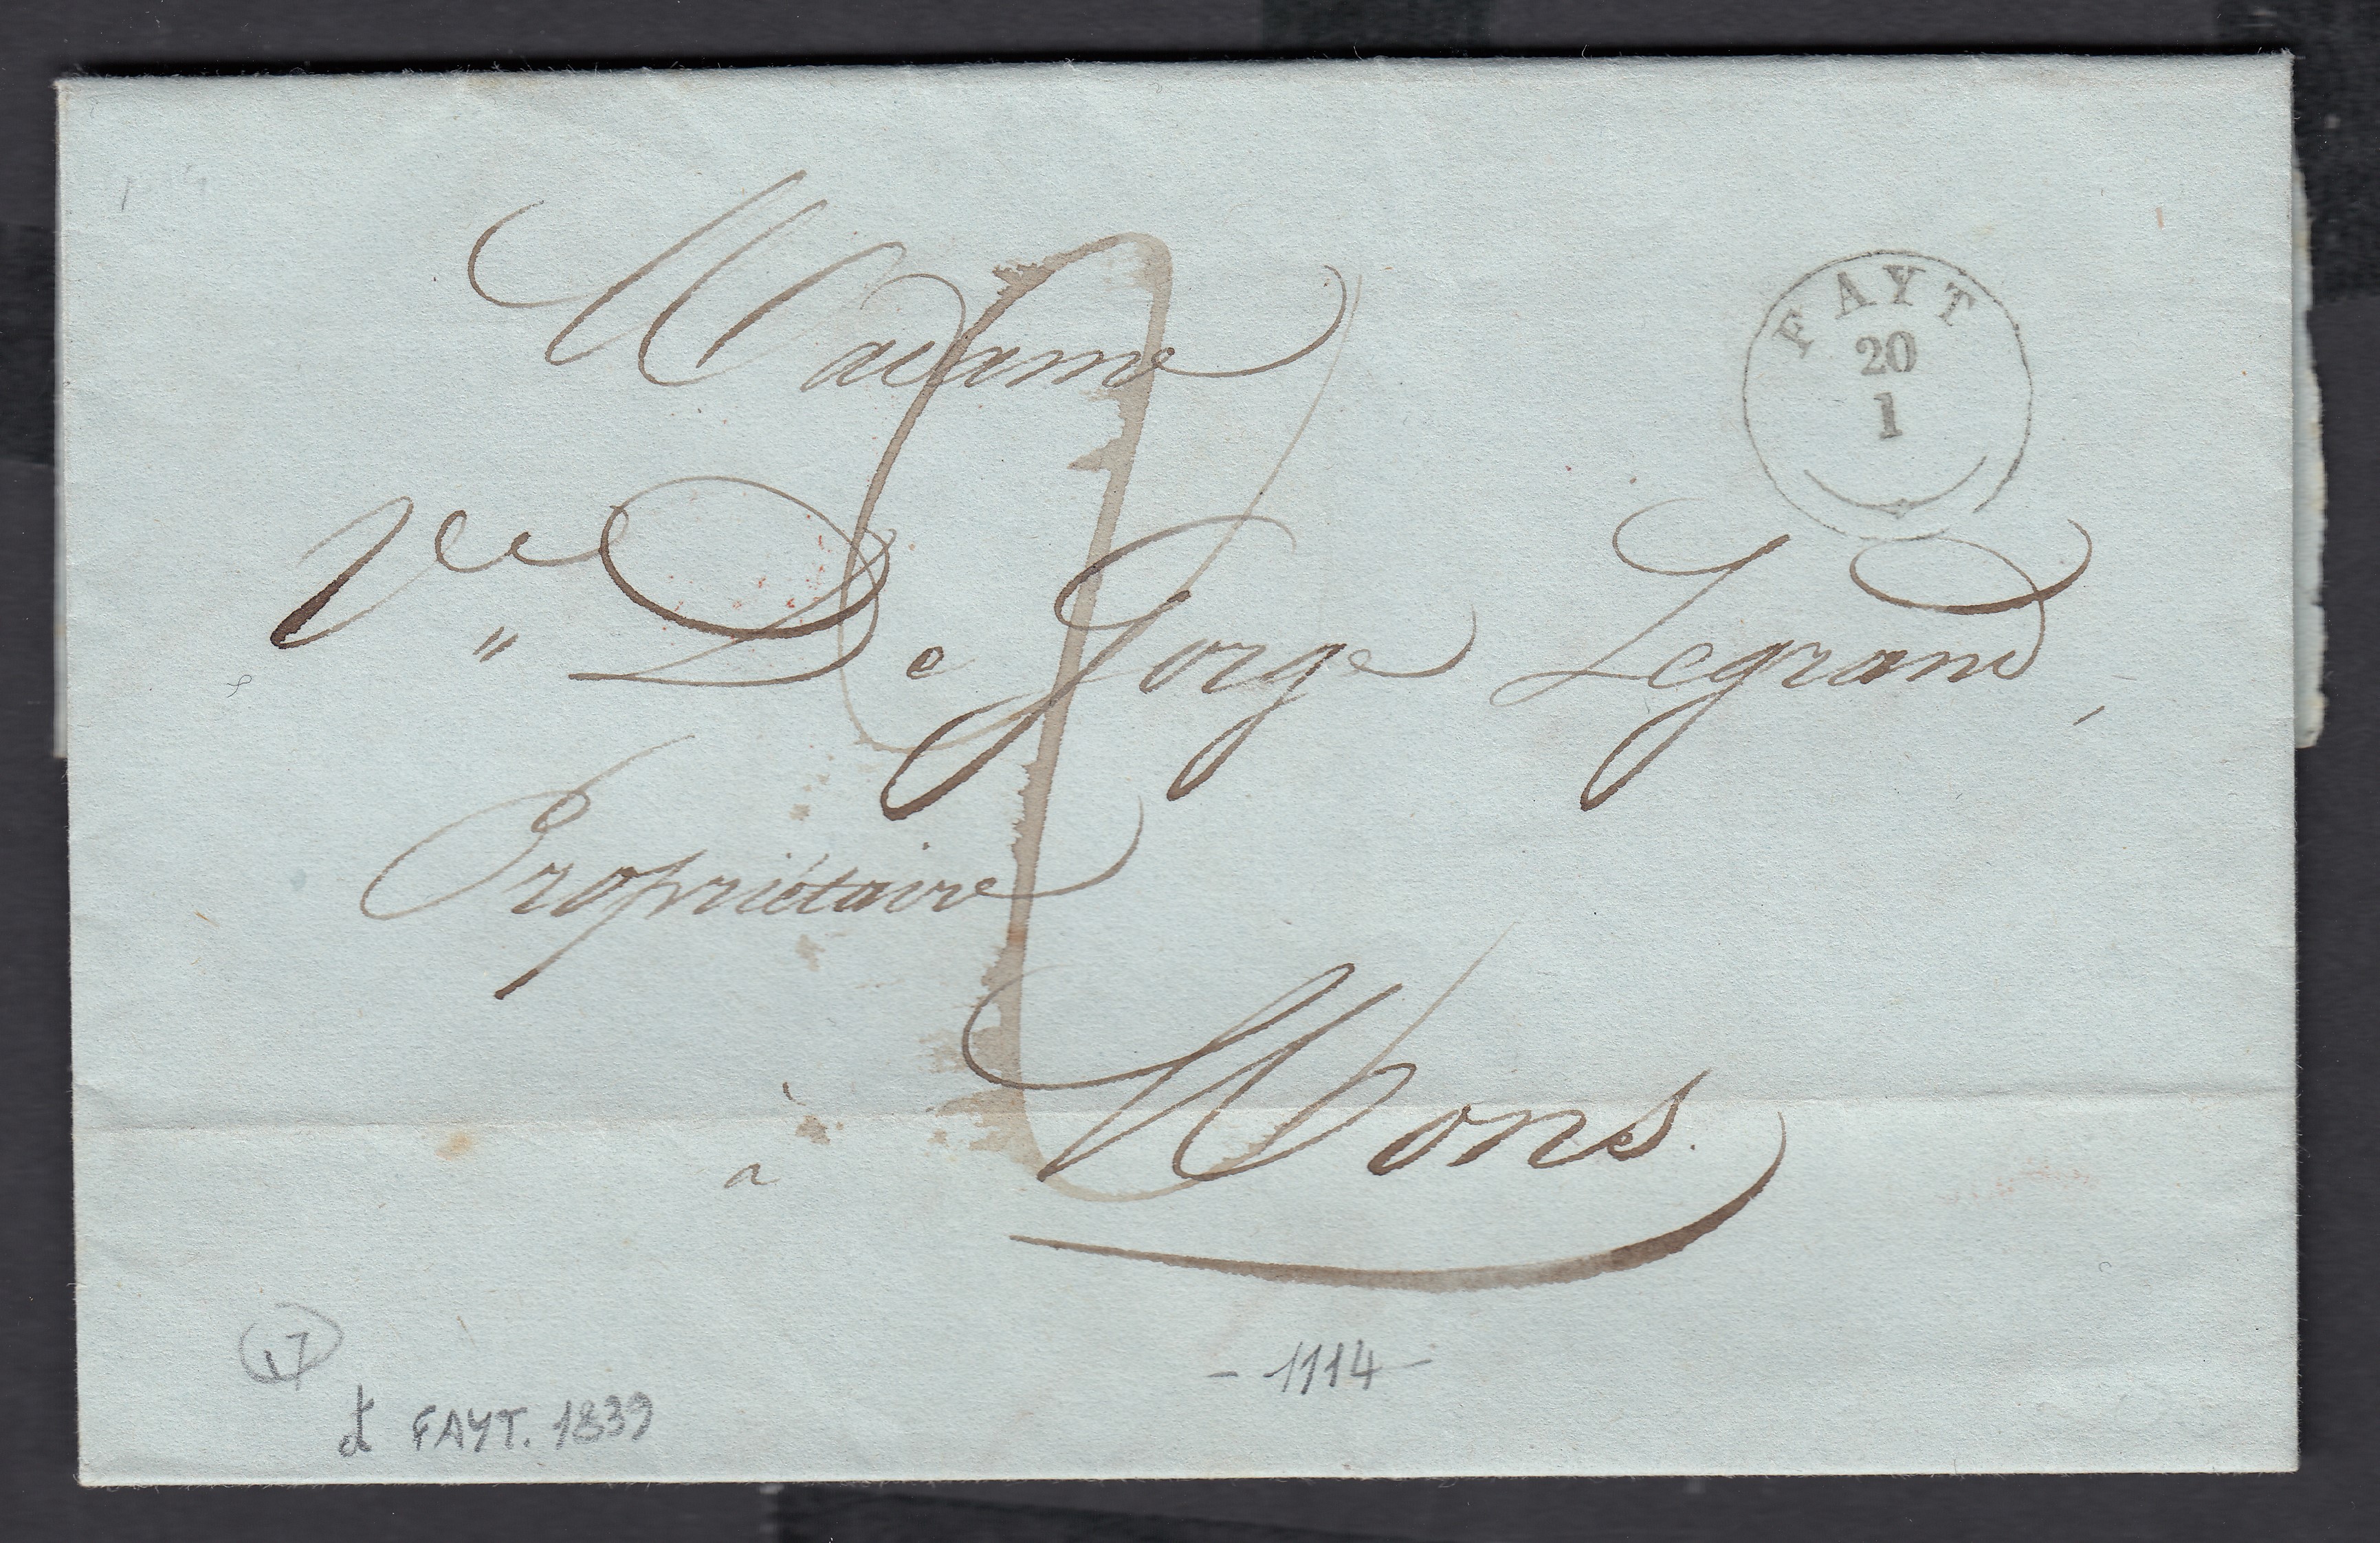 Madame
FAYT
20
1
Vve De Gorge Legrand,
Propriétaire
à Mons.
17
- 1114 -
FAYT. 1839